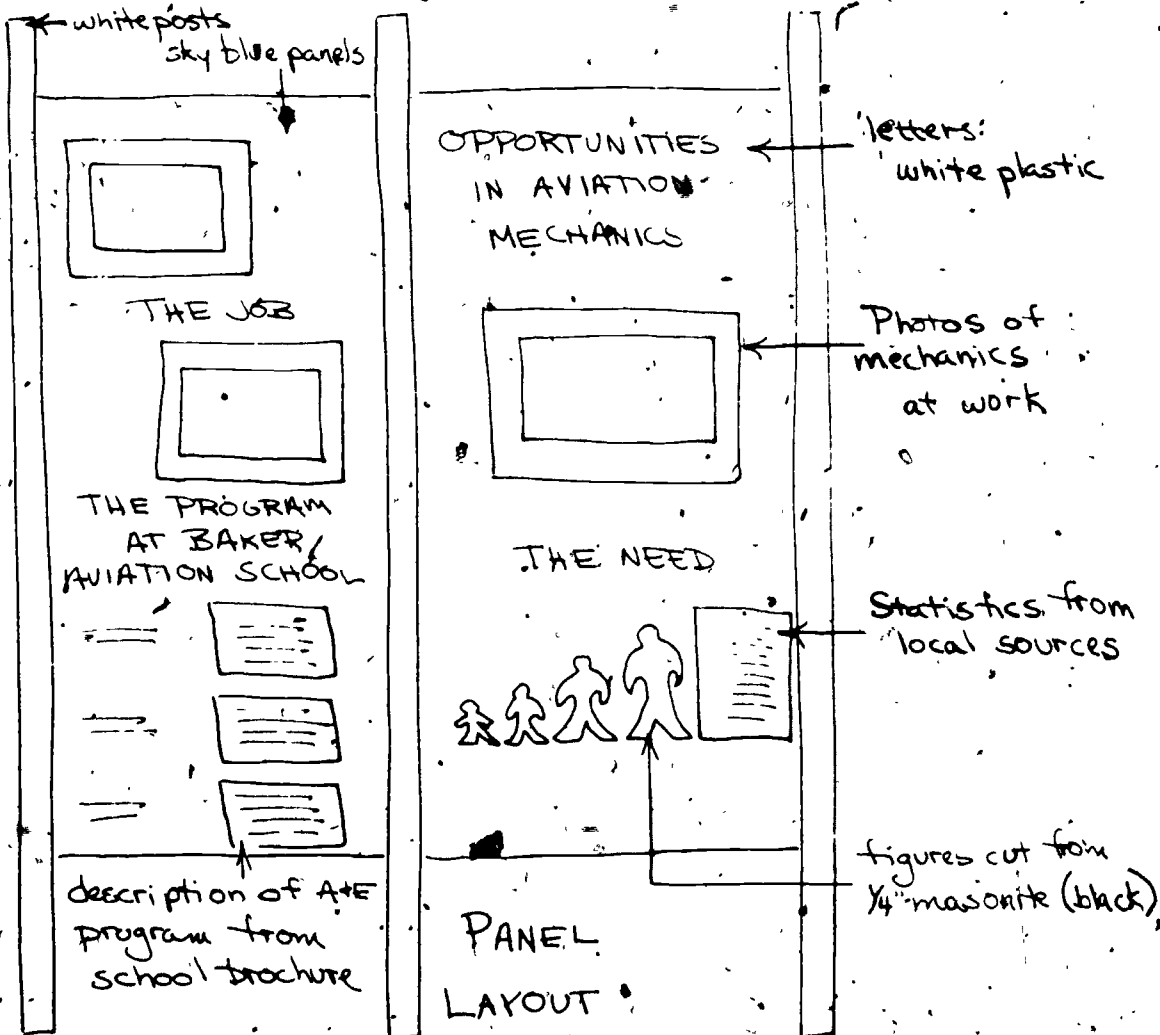 white posts
sky blue panels
THE JOB
THE PROGRAM
AT BAKER
AVIATION SCHOOL
description of A+E
program from
school brochure
OPPORTUNITIES
IN AVIATION
MECHANICS
THE NEED
PANEL
LAYOUT
letters:
white plastic
Photos of
mechanics
at work
Statistics from
local sources
figures cut from
1/4" masonite (black)